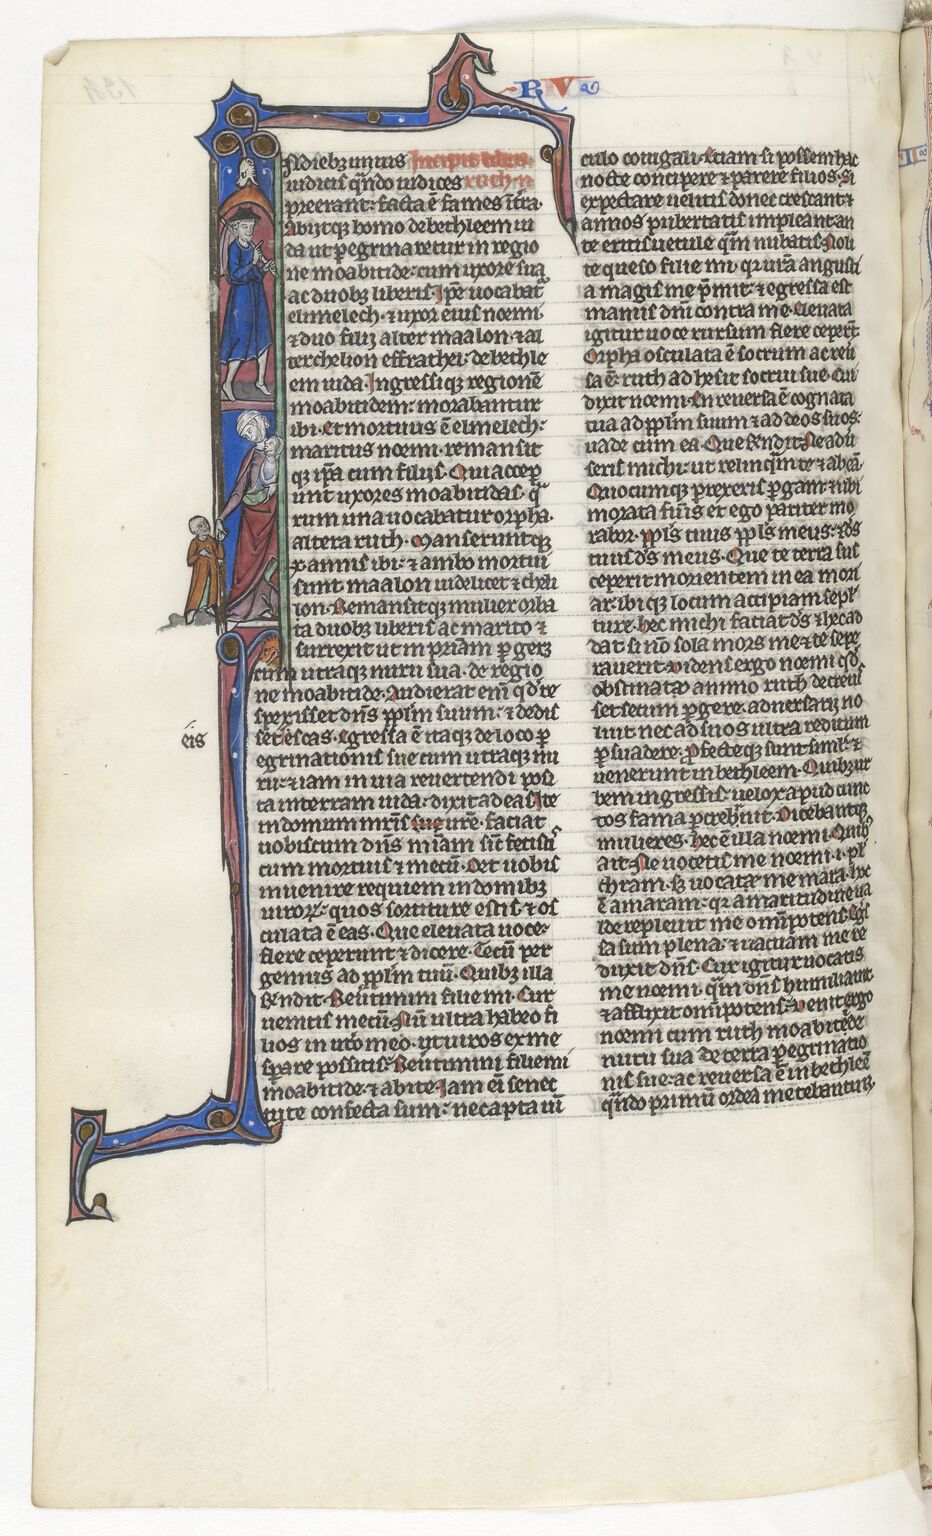 RV
N dieb; unius Incipit liber
iudicis qn̄do iudices ruth·
preerant: facta ē fames ī t̄ra·
Abijtq; homo de bethleem iu
da ut p̲egrinaretur in regio
ne moabitide: cum uxore sua
ac duob; liberis· Ip̄e uocabat̄
elimelech· ⁊ uxor eius noemi·
⁊ duo filij alter maalon· ⁊ al
ter chelion effrathei· de bethle
em iuda· Ingressiq; regionē
moabitidem: morabantur
ibi· Et mortuus ē elimelech:
maritus noemi· remansit
q; ip̄a cum filijs· Qui accep̲
unt uxores moabitidas· q̄
rum una uocabatur orpha·
altera ruth· Manseruntq;
x· annis ibi· ⁊ ambo mortui
sunt maalon uidelicet ⁊ cheli
lon· Remansitq; mulier orba
ta duob; liberis ac marito ⁊
surrexit ut in pr̄iam p̲gere
cum utraq; nuru sua· de regio
ne moabitide· Audierat eni̅ qd̄ re
spexisset dn̄s pp̄lm suum· ⁊ dedis
set escas· Egressa ē itaq; de loco p̲
eis
egrinationis sue cum utraq; nu
ru· ⁊ iam in uia reuertendi posi
ta in terram iuda· dixit ad eas· Ite
in domum mr̄is sue ur̄e· faciat
uobiscum dn̄s mīam sic̄ fecistis
cum mortuis ⁊ mecū· Det uobis
inuenire requiem in domib;
uiroꝝ· quos sortiture estis· ⁊ os
culata ē eas· Que eleuata uoce·
flere ceperunt ⁊ dicere· Tecū per
gemus ad pp̄lm tuū· Quib; illa
Rn̄dit· Reūtimini filie mi· Cur
uenitis mecū· Nū ultra habeo fi
lios in utō meo· ut uiros ex me
sp̲are possitis· Reūtimini filie mi
moabitide· ⁊ abite· Iam ei̅ senec
tute confecta sum: nec apta uī
culo coniugali· Etiam si possem hac
nocte concipere ⁊ parere filios· Si
expectare uelitis donec crescant ⁊
annos pubertatis impleant an
te eritis uetule qm̄ nubatis· Noli
te queso filie mi· qr ur̄a angusti
a magis me p̄mit· ⁊ egressa est
manus dn̄i contra me· Eleuata
igitur uoce rursum flere ceper̄t
Orpha osculata ē socrum ac reū
sa ē· ruth adhesit socrui sue· Cui
dixit noemi· En reuersa ē cognata
tua ad pp̄lm suum ⁊ ad deos suos·
uade cum ea· Que Rn̄dit· Ne adū
seris michi· ut relinq̄m te ⁊ abeā·
Quocumq; p̲rexeris p̲gam· ⁊ ubi
morata fūis et ego pariter mo
rabor· pp̄ls tuus pp̄ls meus· ⁊ ds̄
tuus ds̄ meus· Que te terra sus
ceperit morientem in ea mori
ar· ibiq; locum accipiam sepl̄
ture· hec michi faciat ds̄ ⁊ hec ad
dat si nō sola mors me ⁊ te sepe
rauerit· Videns ergo noemi qd̄
obstinato animo ruth decreuis
set secum p̲gere· aduersarij no
luit nec ad suos ultra reditum
p̲suadere· p̲fecteq; sunt simul· ⁊
uenerunt in bethleem· Quib; ur
bem ingressis· uelox apud cunc
tos fama p̲crebuit· Dicebantq;
mulieres· hec ē illa noemi· Quib;
ait· Ne uocetis me noemi· i· pl̄
chram· s; uocate me mara· hoc
ē amaram· qr amaritudine ua
lde repleuit me om̄ipotens· Egs̄
sa sum plena· ⁊ uacuam me re
duxit dn̄s· Cur igitur uocatis
me noemi· qm̄ dn̄s humiliauit
⁊ afflixit om̄ipotens· Venit ergo
noemi cum ruth moabitide
nuru sua de terra p̲egrinatio
nis sue· ac reuersa ē in bethleē
qn̄do primū ordea metebantur·